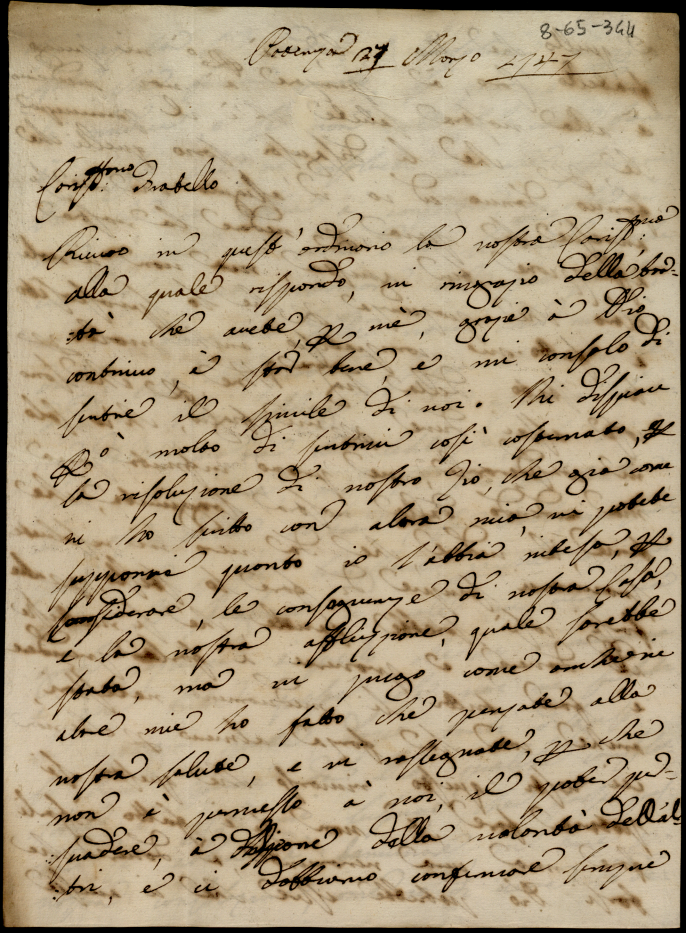 8-65-344
27 Marzo 1747
Cariss:mo Fratello
Ricevo in quest'ordinario la vostra Cariss:ma
alla quale rispondo, vi ringrazio della bon-
:tà che avete, per mè, grazie à Dio
continuo, à star bene, e mi consolo di
sentire il simile di voi. Mi dispiace
però molto di sentirvi così costernato, per
la risoluzione di nostro Zio, che già come
vi ho scritto con altra mia, vi potete
supponere quanto io l'abbia intesa, per
considerare, le conseguenze di nostra Casa,
e la vostra afflizione, quale sarebbe
stata, ma vi prego come anche in
altre mie ho fatto che pensate alla
vostra salute, e vi rassegnate, per che
non è permesso à noi, il poter per-
:suadere, à della volontà dell'al-
:tri, e ci dobbiamo confermare sempre